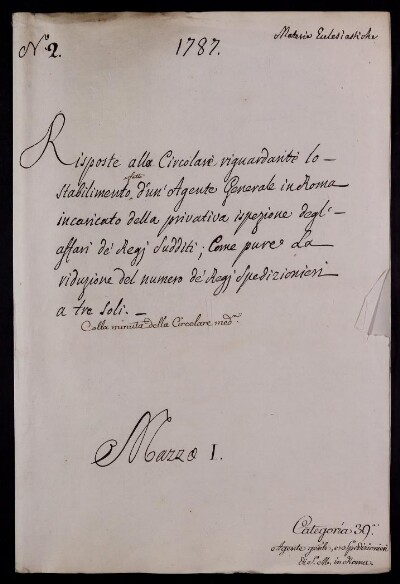 Materie Eclesiastiche
N.º 2.
1787.
Risposte alla Circolare riguardante lo
Stabilimento fatto d'un' Agente Generale in Roma
incaricato della privativa ispezione degl'
affari de' Regj Sudditi; Come pure La
riduzione del numero de' Regj Spedizionieri
a tre soli. —
Colla minuta della Circolare med.ª
Mazzo I.
Categoria 39.ª
Agente gen̄le, e Spedizionieri
di S. M. in Roma.